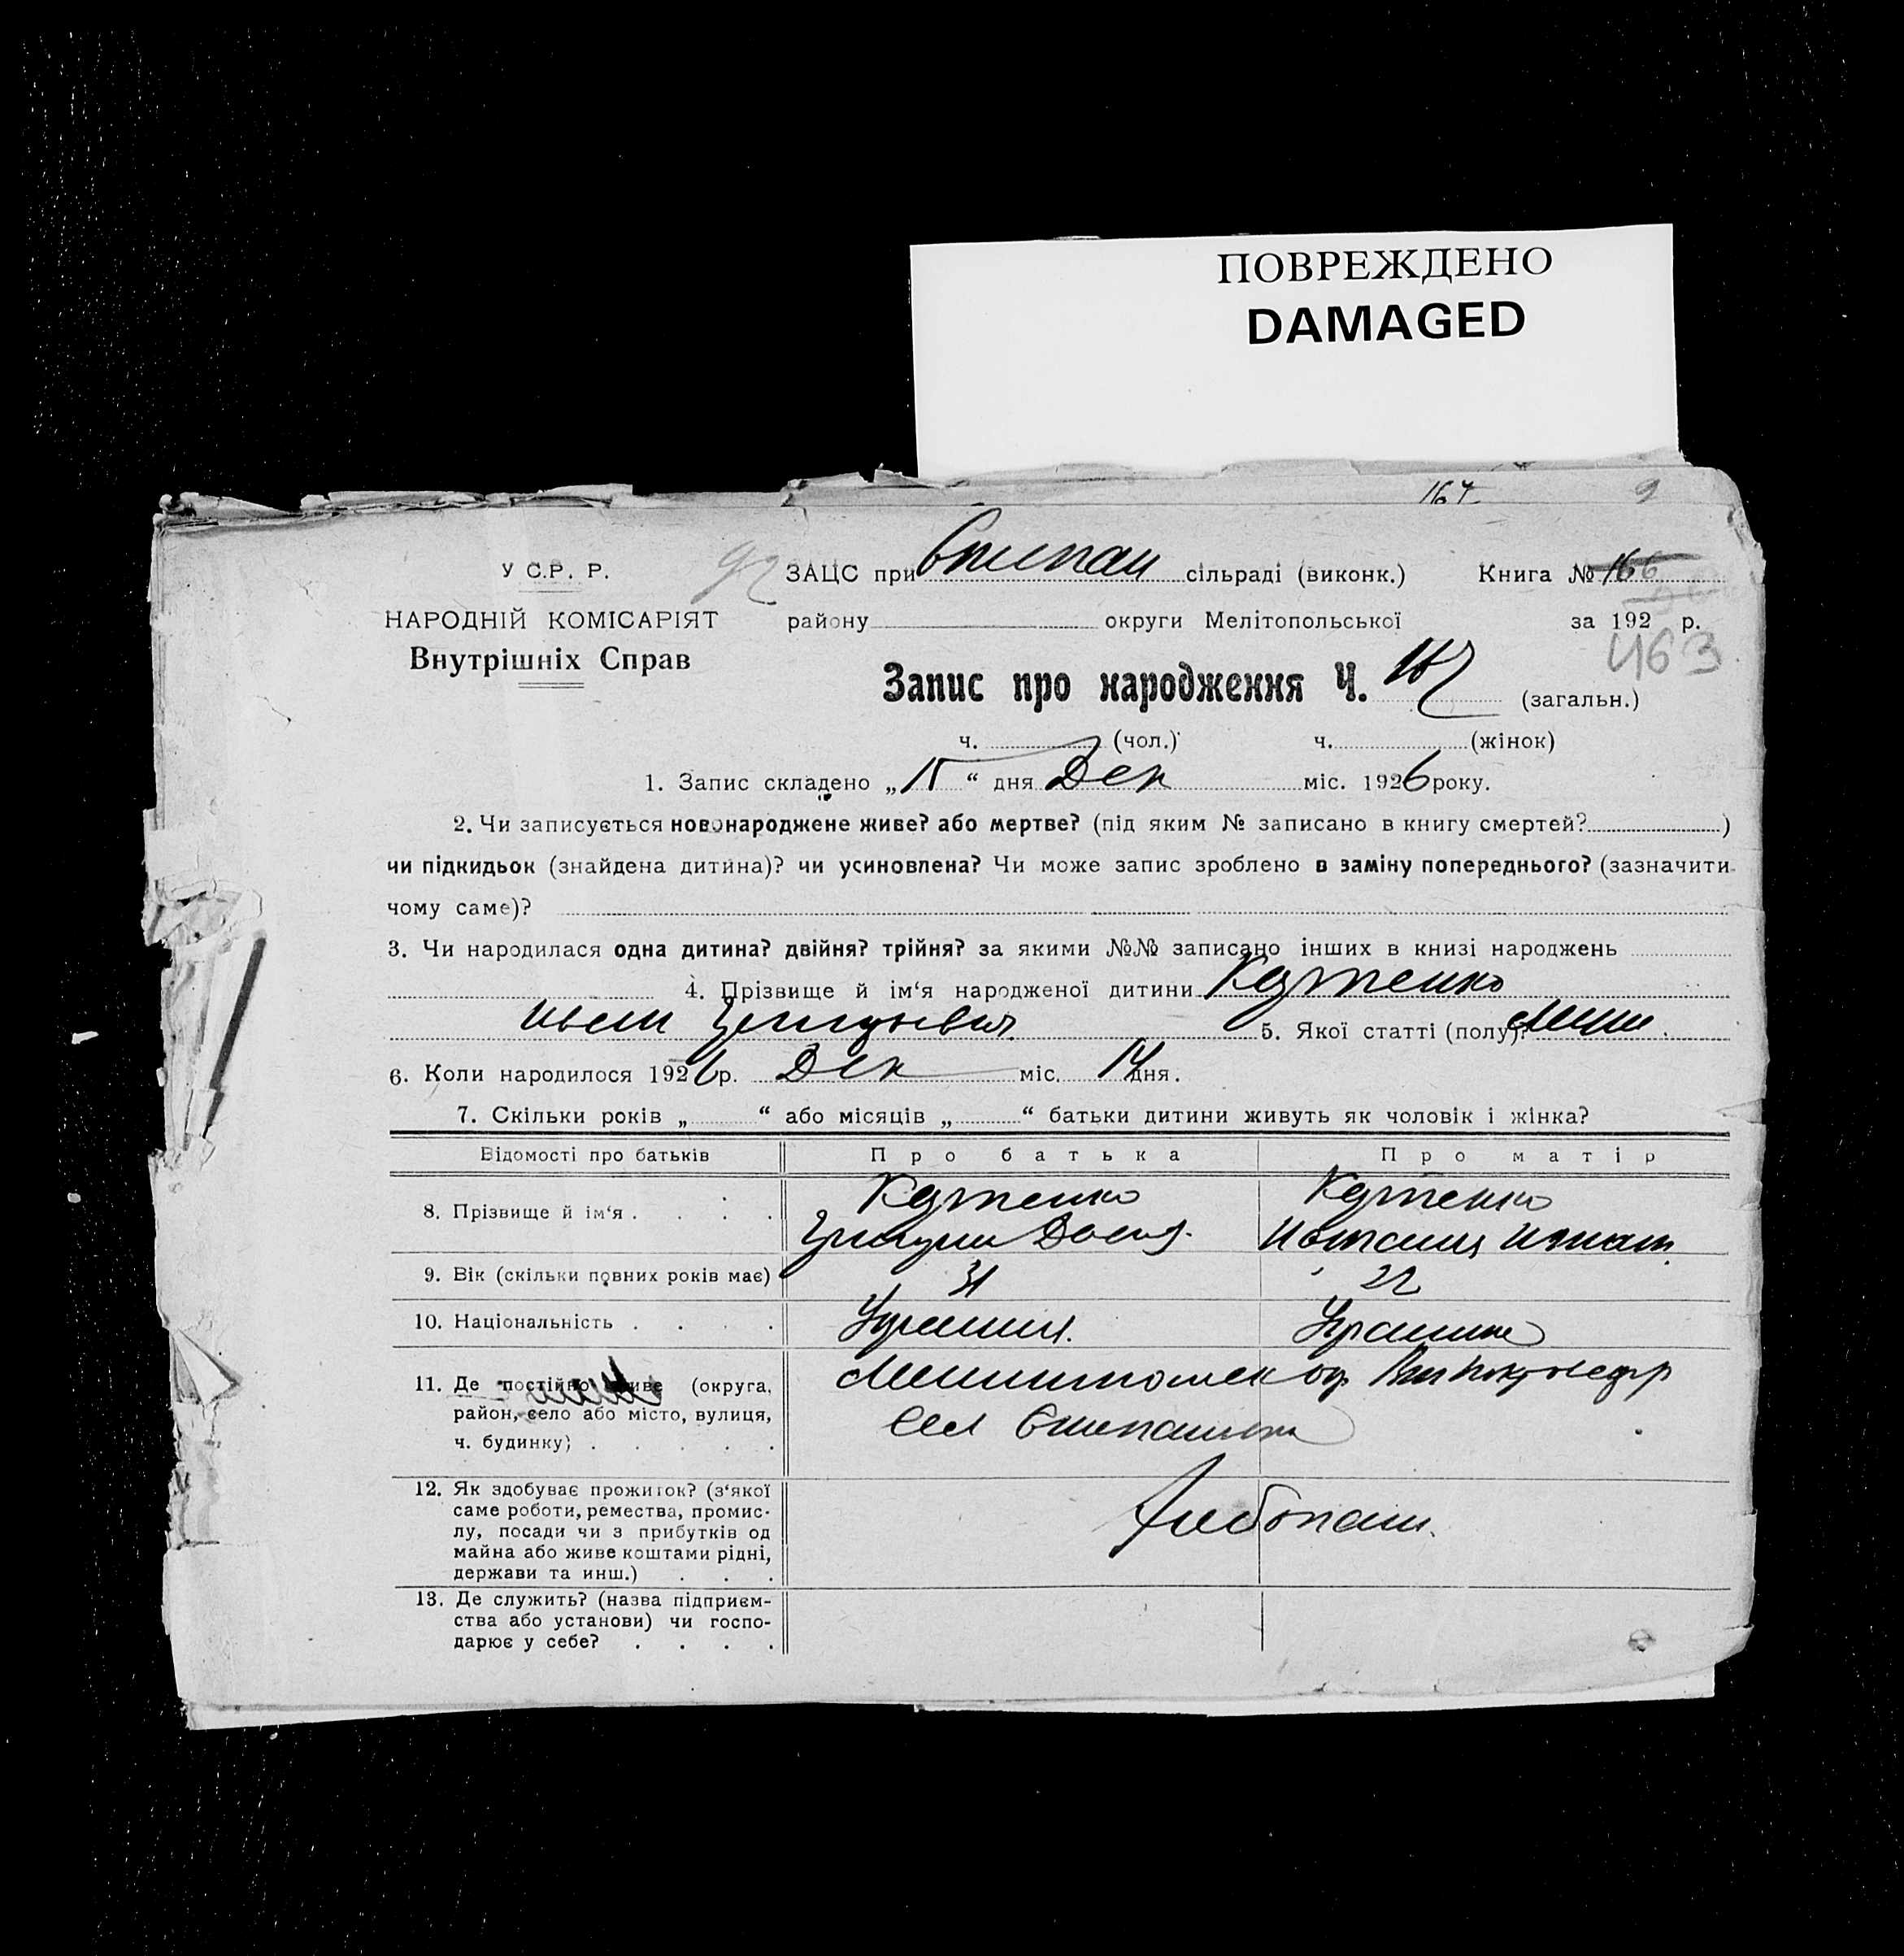 ПОВРЕЖДЕНО
DAMAGED
164 9
У С.Р. Р. 92 ЗАЦС при сільраді (виконк.) Книга № 166
НАРОДНІЙ КОМІСАРІЯТ району округи Мелітопольської за 192 р.
Внутрішніх Справ 463
Запис про народження Ч. 167 (загальн.)
ч. (чол.) ч. (жінок)
1. Запис складено „15“ дня Дек міс. 1926 року.
2. Чи записується новонароджене живе? або мертве? (під яким № записано в книгу смертей? )
чи підкидьок (знайдена дитина)? чи усиновлена? Чи може запис зроблено в заміну попереднього? (зазначити
чому саме)?
3. Чи народилася одна дитина? двійня? трійня? за якими №№ записано інших в книзі народжень
4. Прізвище й ім‘я народженої дитини
Иван Григорьевич 5. Якої статті (полу)?
6. Коли народилося 1926 р. Дек міс. 14 дня.
7. Скільки років „ “ або місяців „ “ батьки дитини живуть як чоловік і жінка?
Відомості про батьків Про батька Про матір
8. Прізвище й ім‘я . . . .
Григорий
9. Вік (скільки повних років має) 31 22
10. Національність . . . .
11. Де постійно живе (округа,
район, село або місто, вулиця,
ч. будинку) . . . . .
12. Як здобуває прожиток? (з‘якої
саме роботи, ремества, промис-
лу, посади чи з прибутків од
майна або живе коштами рідні,
держави та инш.) . . .
Хлебопаш.
13. Де служить? (назва підприєм-
ства або установи) чи госпо-
дарює у себе? . . . .